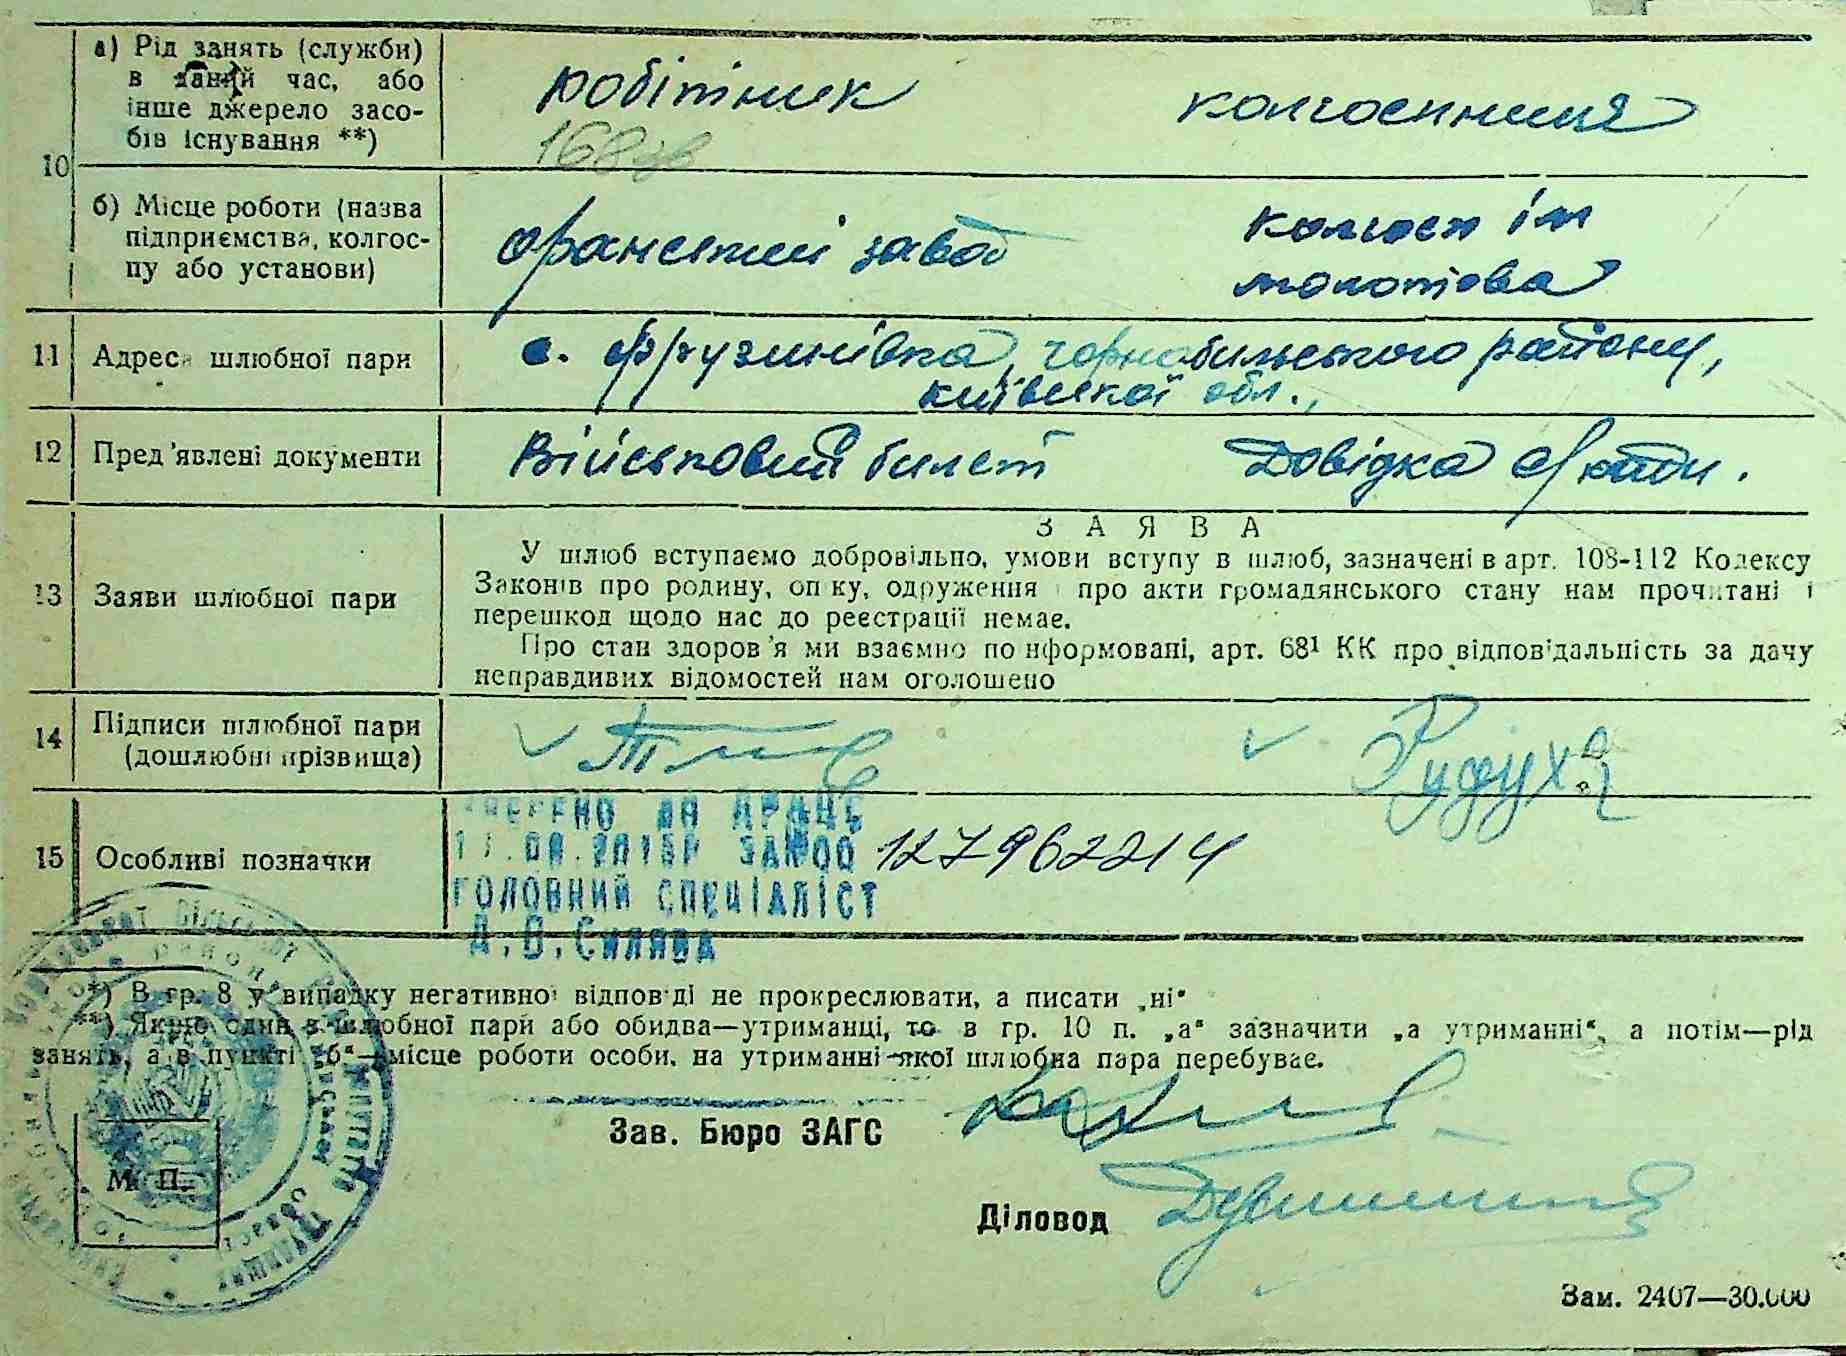 10
а) Рід занять (служби)
в даний час, або
інше джерело засо-
бів існування **)
робітник
колгоспниця
168
б) Місце роботи (назва
підприємства, колгос-
пу або установи)
завод
колгосп ім
молотова
11 Адреса шлюбної пари
с. Фрузинівка, чорнобильського району,
київської обл.,
12 Пред'явлені документи
Військовий билет
Довідка с/ради.
13 Заяви шлюбної пари
ЗАЯВА
У шлюб вступаємо добровільно, умови вступу в шлюб, зазначені в арт. 108-112 Кодексу
Законів про родину, опіку, одруження і про акти громадянського стану нам прочитані і
перешкод щодо нас до реєстрації немає.
Про стан здоров'я ми взаємно поінформовані, арт. 68¹ КК про відповідальність за дачу
неправдивих відомостей нам оголошено
14 Підписи шлюбної пари
(дошлюбні прізвища)
15 Особливі позначки
ДО ДРАЦС
ЗА №00 127962214
ГОЛОВНИЙ СПЕЦІАЛІСТ
*) В гр. 8 у випадку негативної відповіді не прокреслювати, а писати „ні"
**) Якщо один з шлюбної пари або обидва—утриманці, то в гр. 10 п. „а" зазначити „а утриманні", а потім—рід
занять, а в пункті „б"—місце роботи особи, на утриманні якої шлюбна пара перебуває.
Зав. Бюро ЗАГС
М. П.
Діловод
Зам. 2407—30.000